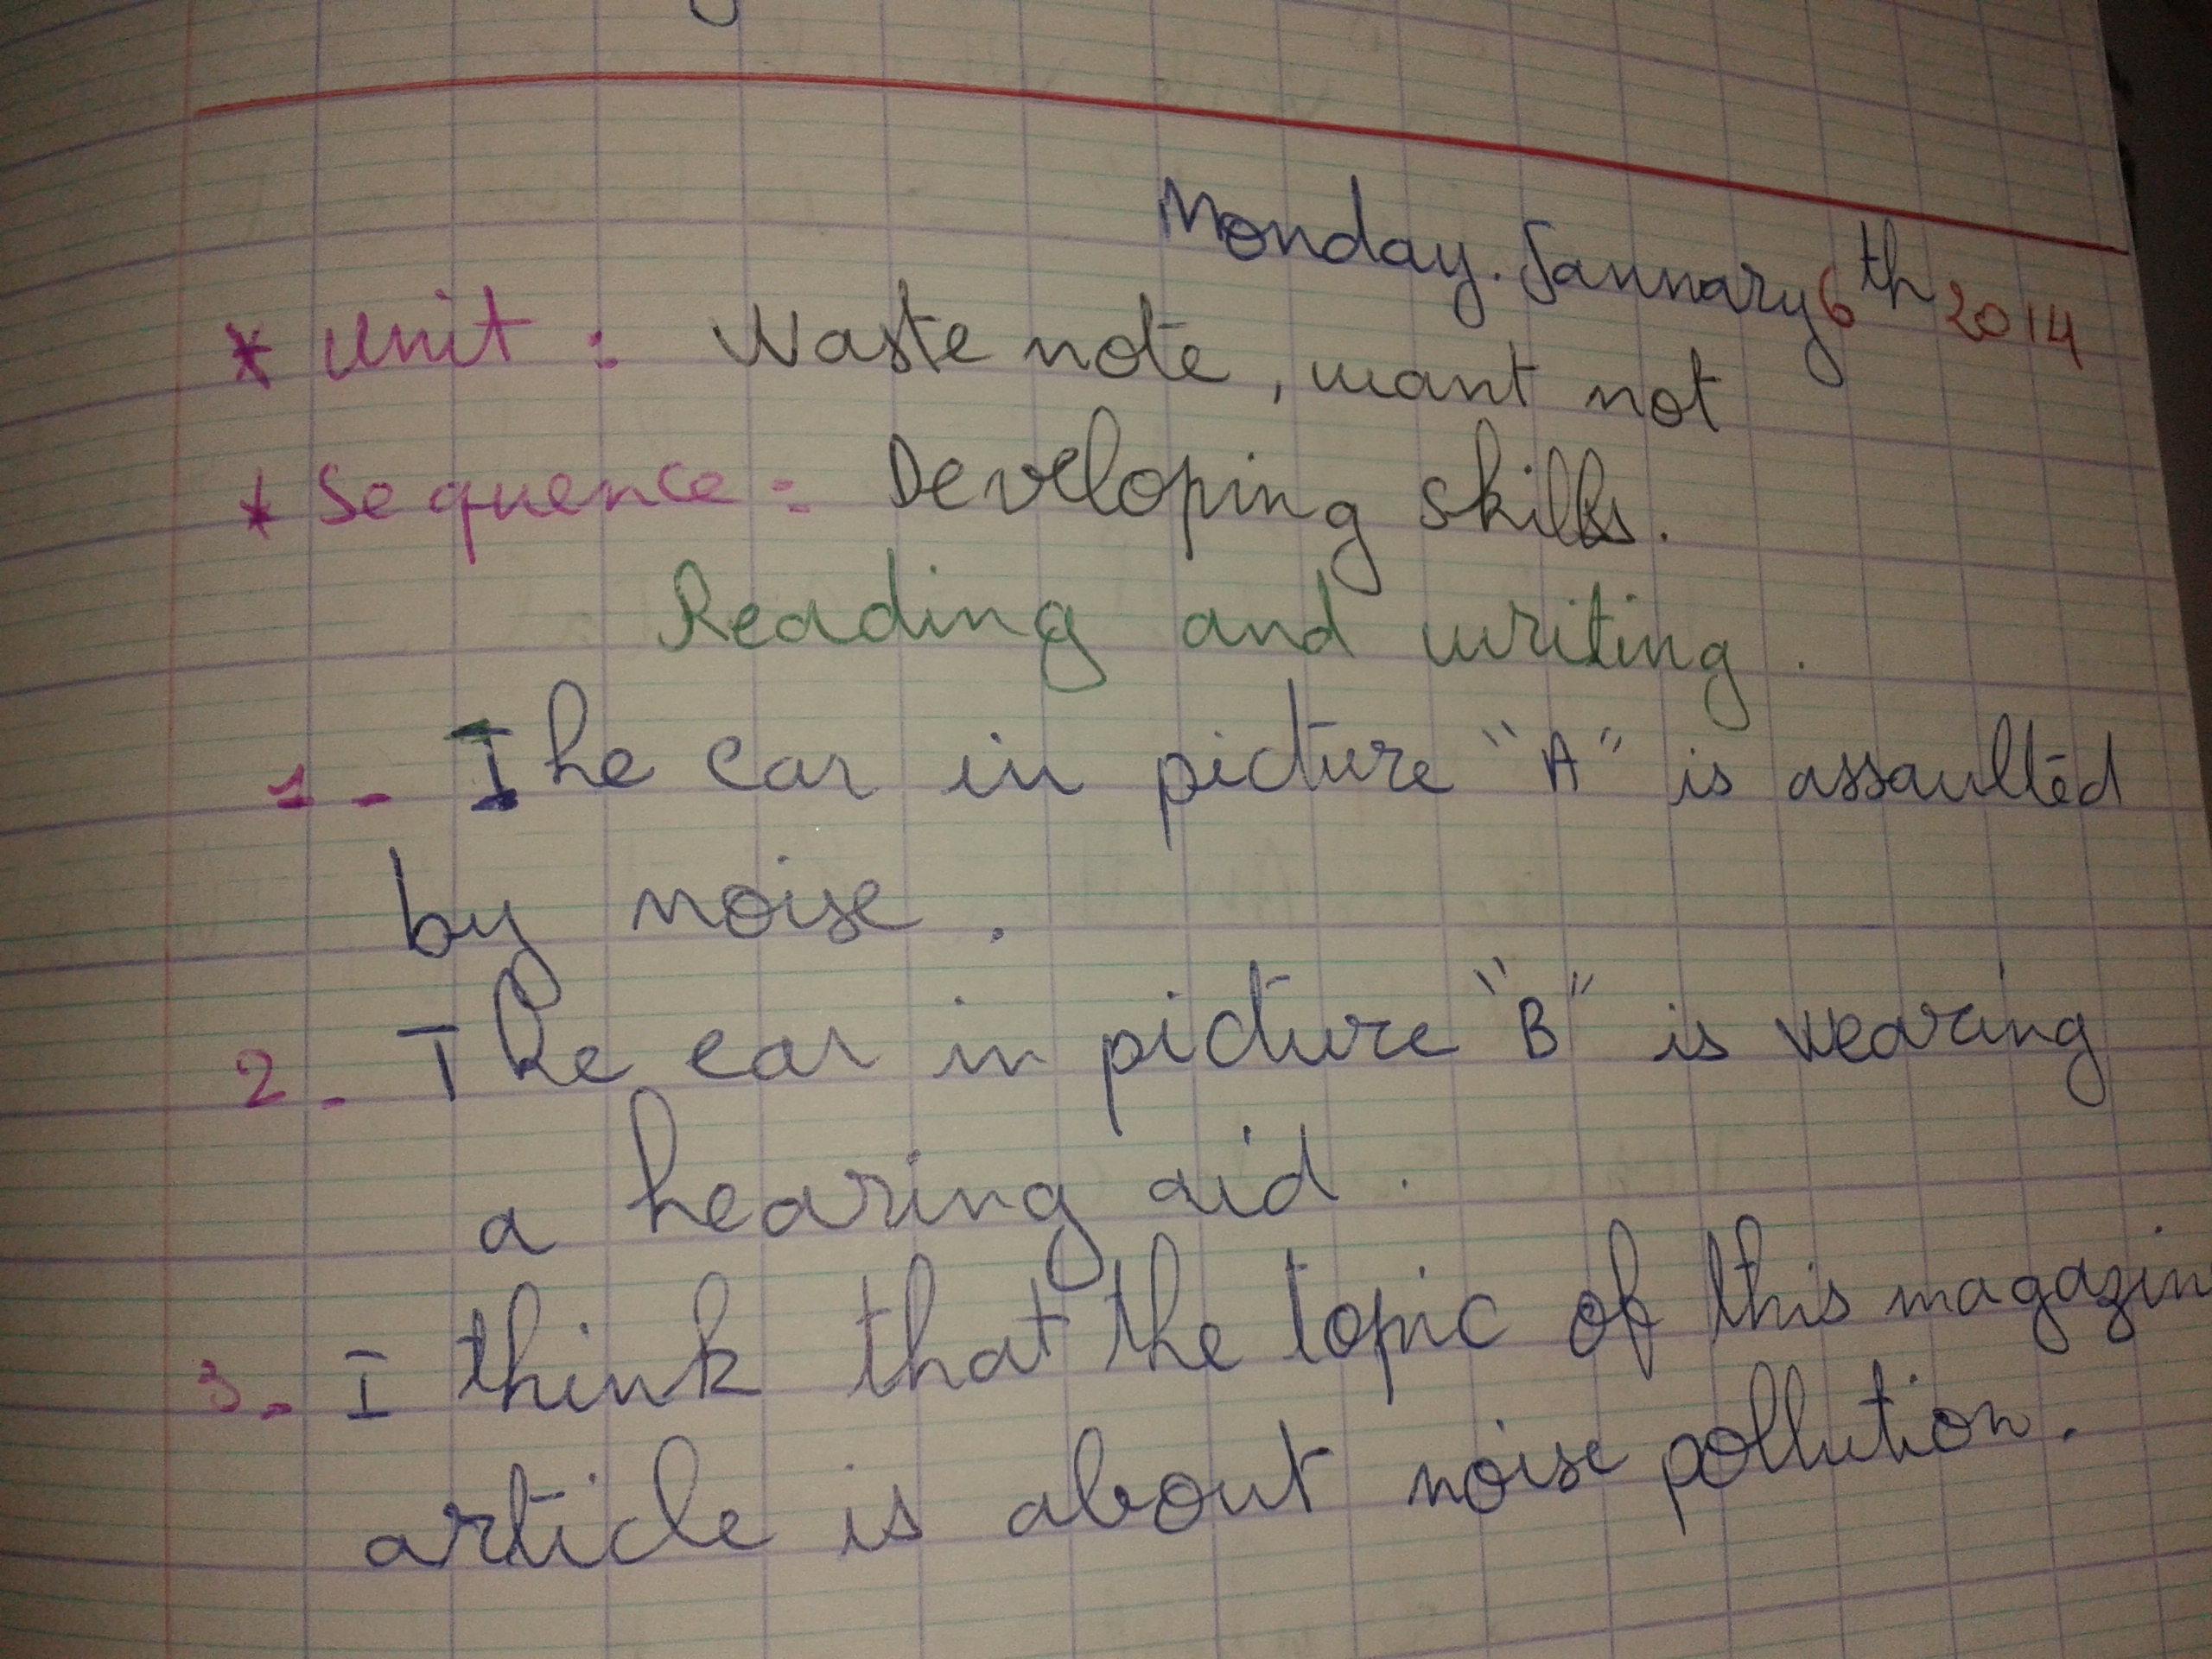 Monday. January 6th 2014
* Unit : Waste note, want not
* Sequence : Developing skills.
Reading and writing.
1 - The ear in picture "A" is assaulted
by noise.
2 - The ear in picture "B" is wearing
a hearing aid.
3 - I think that the topic of this magazin
article is about noise pollution.